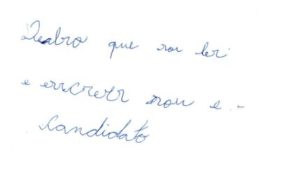 Dealro que sou ler
e escrerr sou e -
candidato